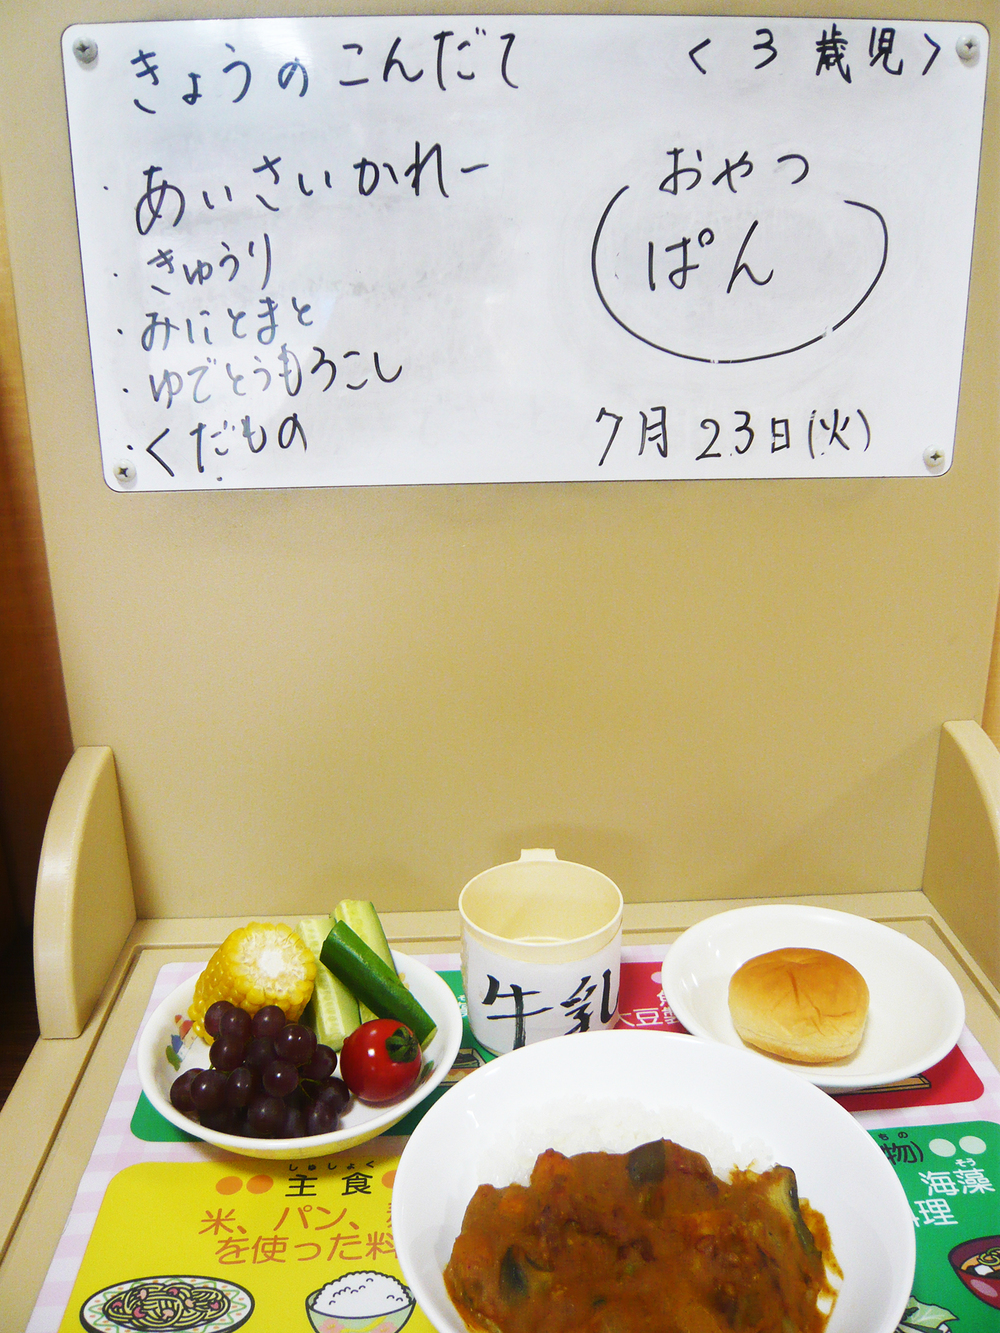 きょうのこんだて
<3歳児>
・あいさいかれー
・きゅうり
・みにとまと
・ゆでとうもろこし
・くだもの
おやつ
ぱん
7月23日(火)
牛乳
大豆
しゅしょく
主食
米、パン、
を使った料
もの
物)
そう
海藻
理